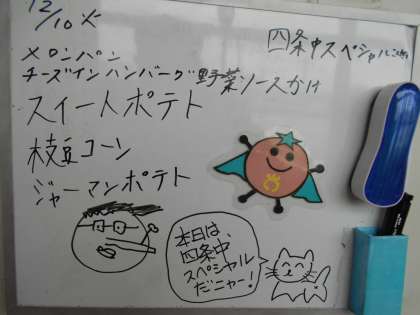 12/10 火
四条中スペシャル
メロンパン
チーズインハンバーグ野菜ソースかけ
スイートポテト
枝豆コーン
ジャーマンポテト
本日は、
四条中
スペシャル
だニャー!